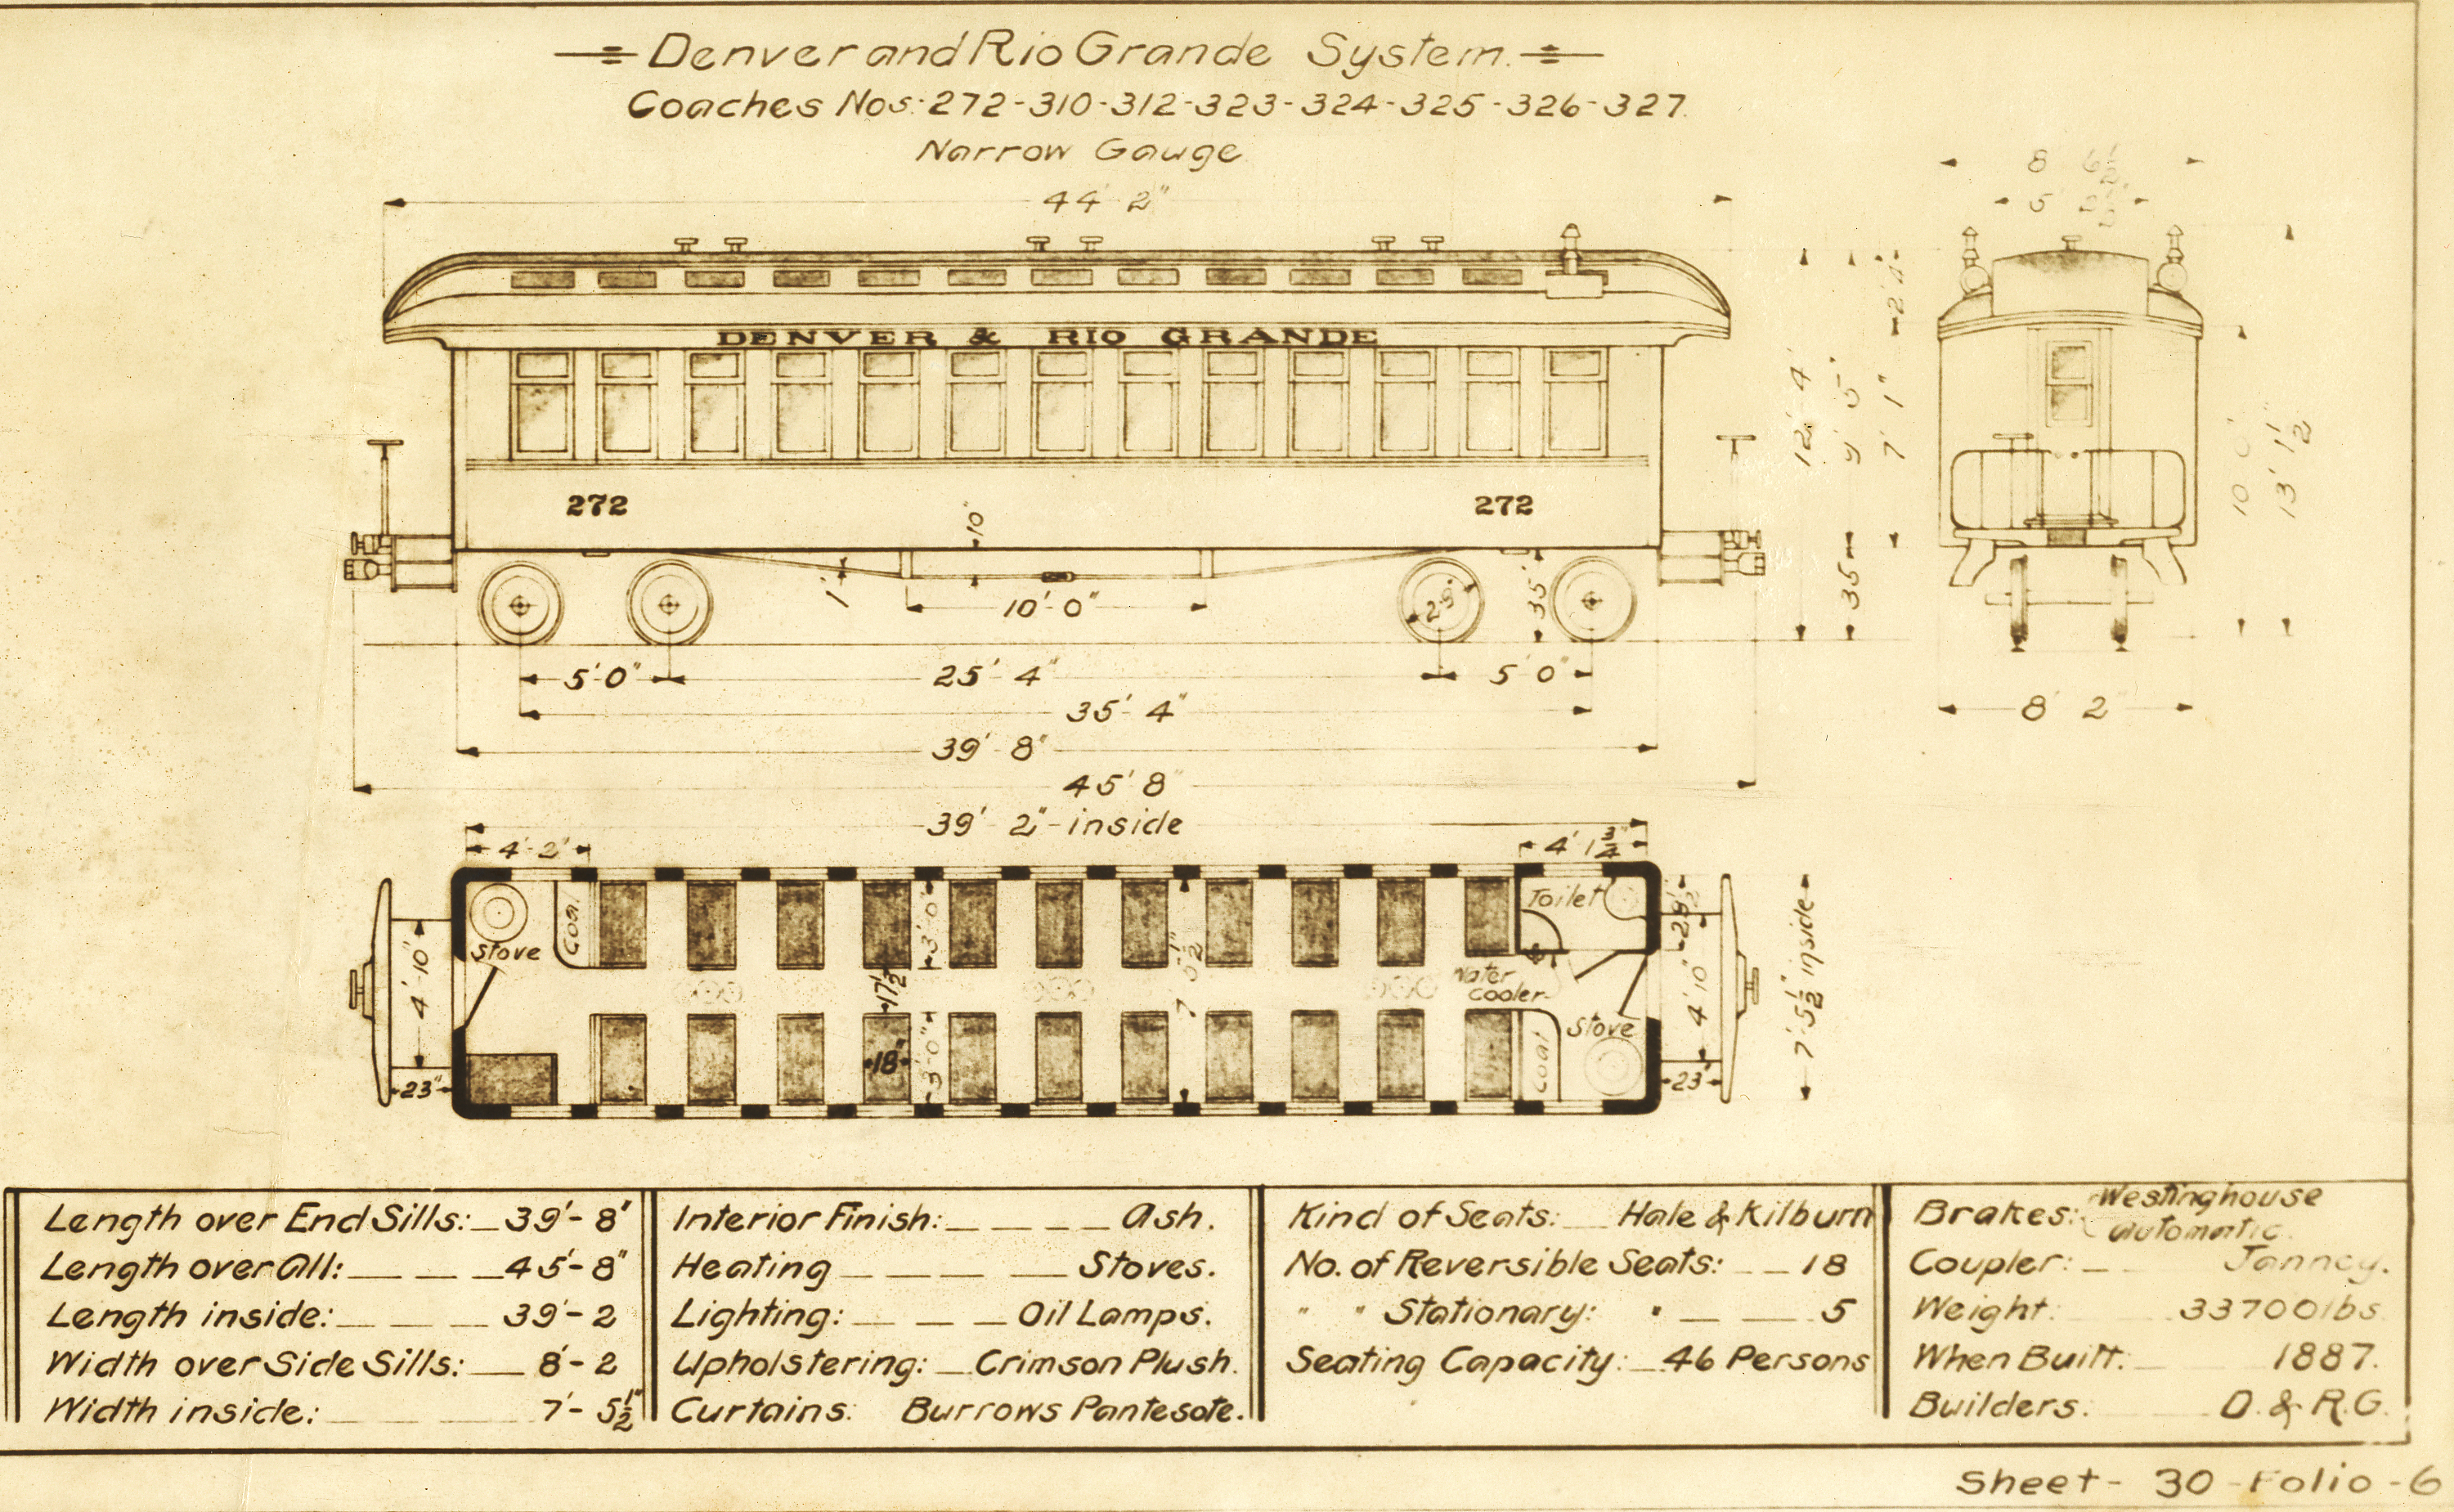 Denver and Rio Grande System.
Coaches Nos. 272-310-312-323-324-325-326-327.
Narrow Gauge
44' 2"
8' 6½"
5'
2'4"
DENVER & RIO GRANDE
12' 4"
9' 5"
7' 1"
10' 0"
13' 1½"
272
272
10"
1"
10'-0"
2'-9"
35"
35"
5'-0"
25'-4"
5' 0"
35'-4"
8' 2"
39'-8"
45' 8"
39'-2"-inside
4'-2"
4' 1¾"
Stove
Coal
Toilet
Water
Cooler
3'-0"
17½"
7' 0½"
4'-10"
4' 10"
7'-5½" inside
18"
3'-0"
Coal
Stove
23"
23"
Length over End Sills: 39'-8"
Length over All: 45'-8"
Length inside: 39'-2
Width over Side Sills: 8'-2
Width inside: 7'-5½"
Interior Finish: Ash.
Heating Stoves.
Lighting: Oil Lamps.
Upholstering: Crimson Plush.
Curtains: Burrows Pantesote.
Kind of Seats: Hale & Kilburn
No. of Reversible Seats: 18
" " Stationary: " 5
Seating Capacity: 46 Persons
Brakes: Westinghouse
Automatic.
Coupler: Janney.
Weight: 33700 lbs
When Built: 1887.
Builders. D. & R.G.
Sheet - 30 - Folio - 6